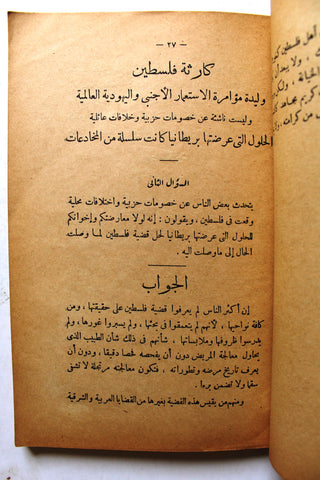 — ٢٧ —
كارثة فلسطين
وليدة مؤامرة الاستعمار الأجنبي واليهودية العالمية
وليست ناشئة عن خصومات حزبية وخلافات عائلية
الحلول التي عرضتها بريطانيا كانت سلسلة من المخادعات
السؤال الثاني
يتحدث بعض الناس عن خصومات حزبية واختلافات محلية
وقعت في فلسطين ، ويقولون : إنه لولا معارضتكم وإخوانكم
للحلول التي عرضتها بريطانيا لحل قضية فلسطين لما وصلت
الحال إلى ما وصلت اليه .
الجواب
إن أكثر الناس لم يعرفوا قضية فلسطين على حقيقتها ، ومن
كافة نواحيها ، لأنهم لم يتعمقوا في بحثها ، ولم يسبروا غورها ، ولم
يدرسوا ظروفها وملابساتها ، شأنهم في ذلك شأن الطبيب الذى
يحاول معالجة المريض دون أن يفحصه فحصا دقيقا ، ودون أن
يعرف تاريخ مرضه وتطوراته ، فتكون معالجته مرتجلة لا تشفي
سقما ولا تضمن برءا .
ومنهم من يقيس هذه القضية بغيرها من القضايا العربية والشرقية
أهل فلسطين